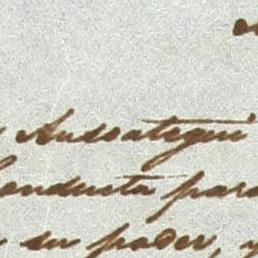 Ausoategui
Conducta para
su poder, y